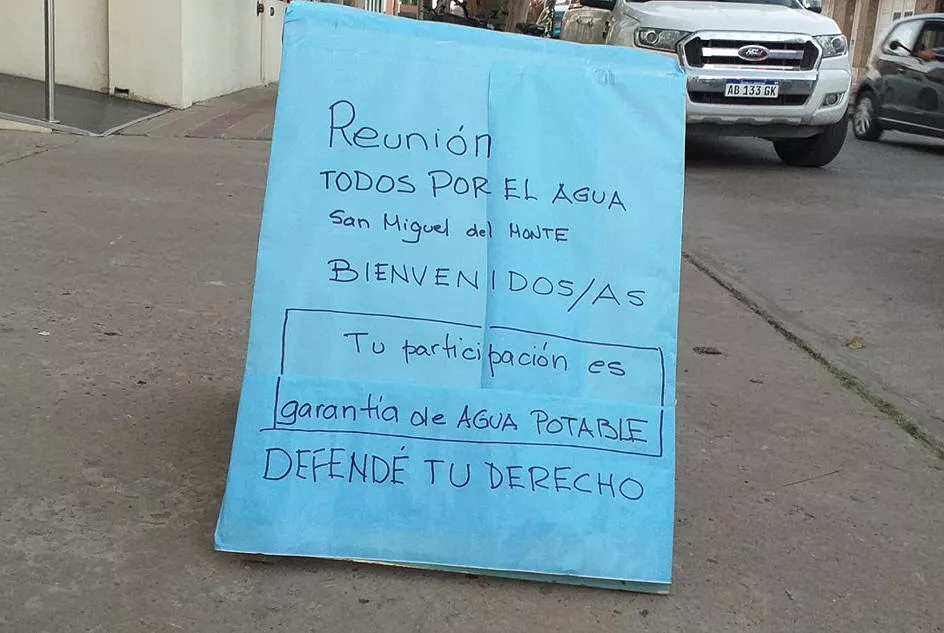 Reunión
TODOS POR EL AGUA
San Miguel del MONTE
BIENVENIDOS/AS
Tu participación es
garantía de AGUA POTABLE
DEFENDÉ TU DERECHO
Ford
AB 133 GK